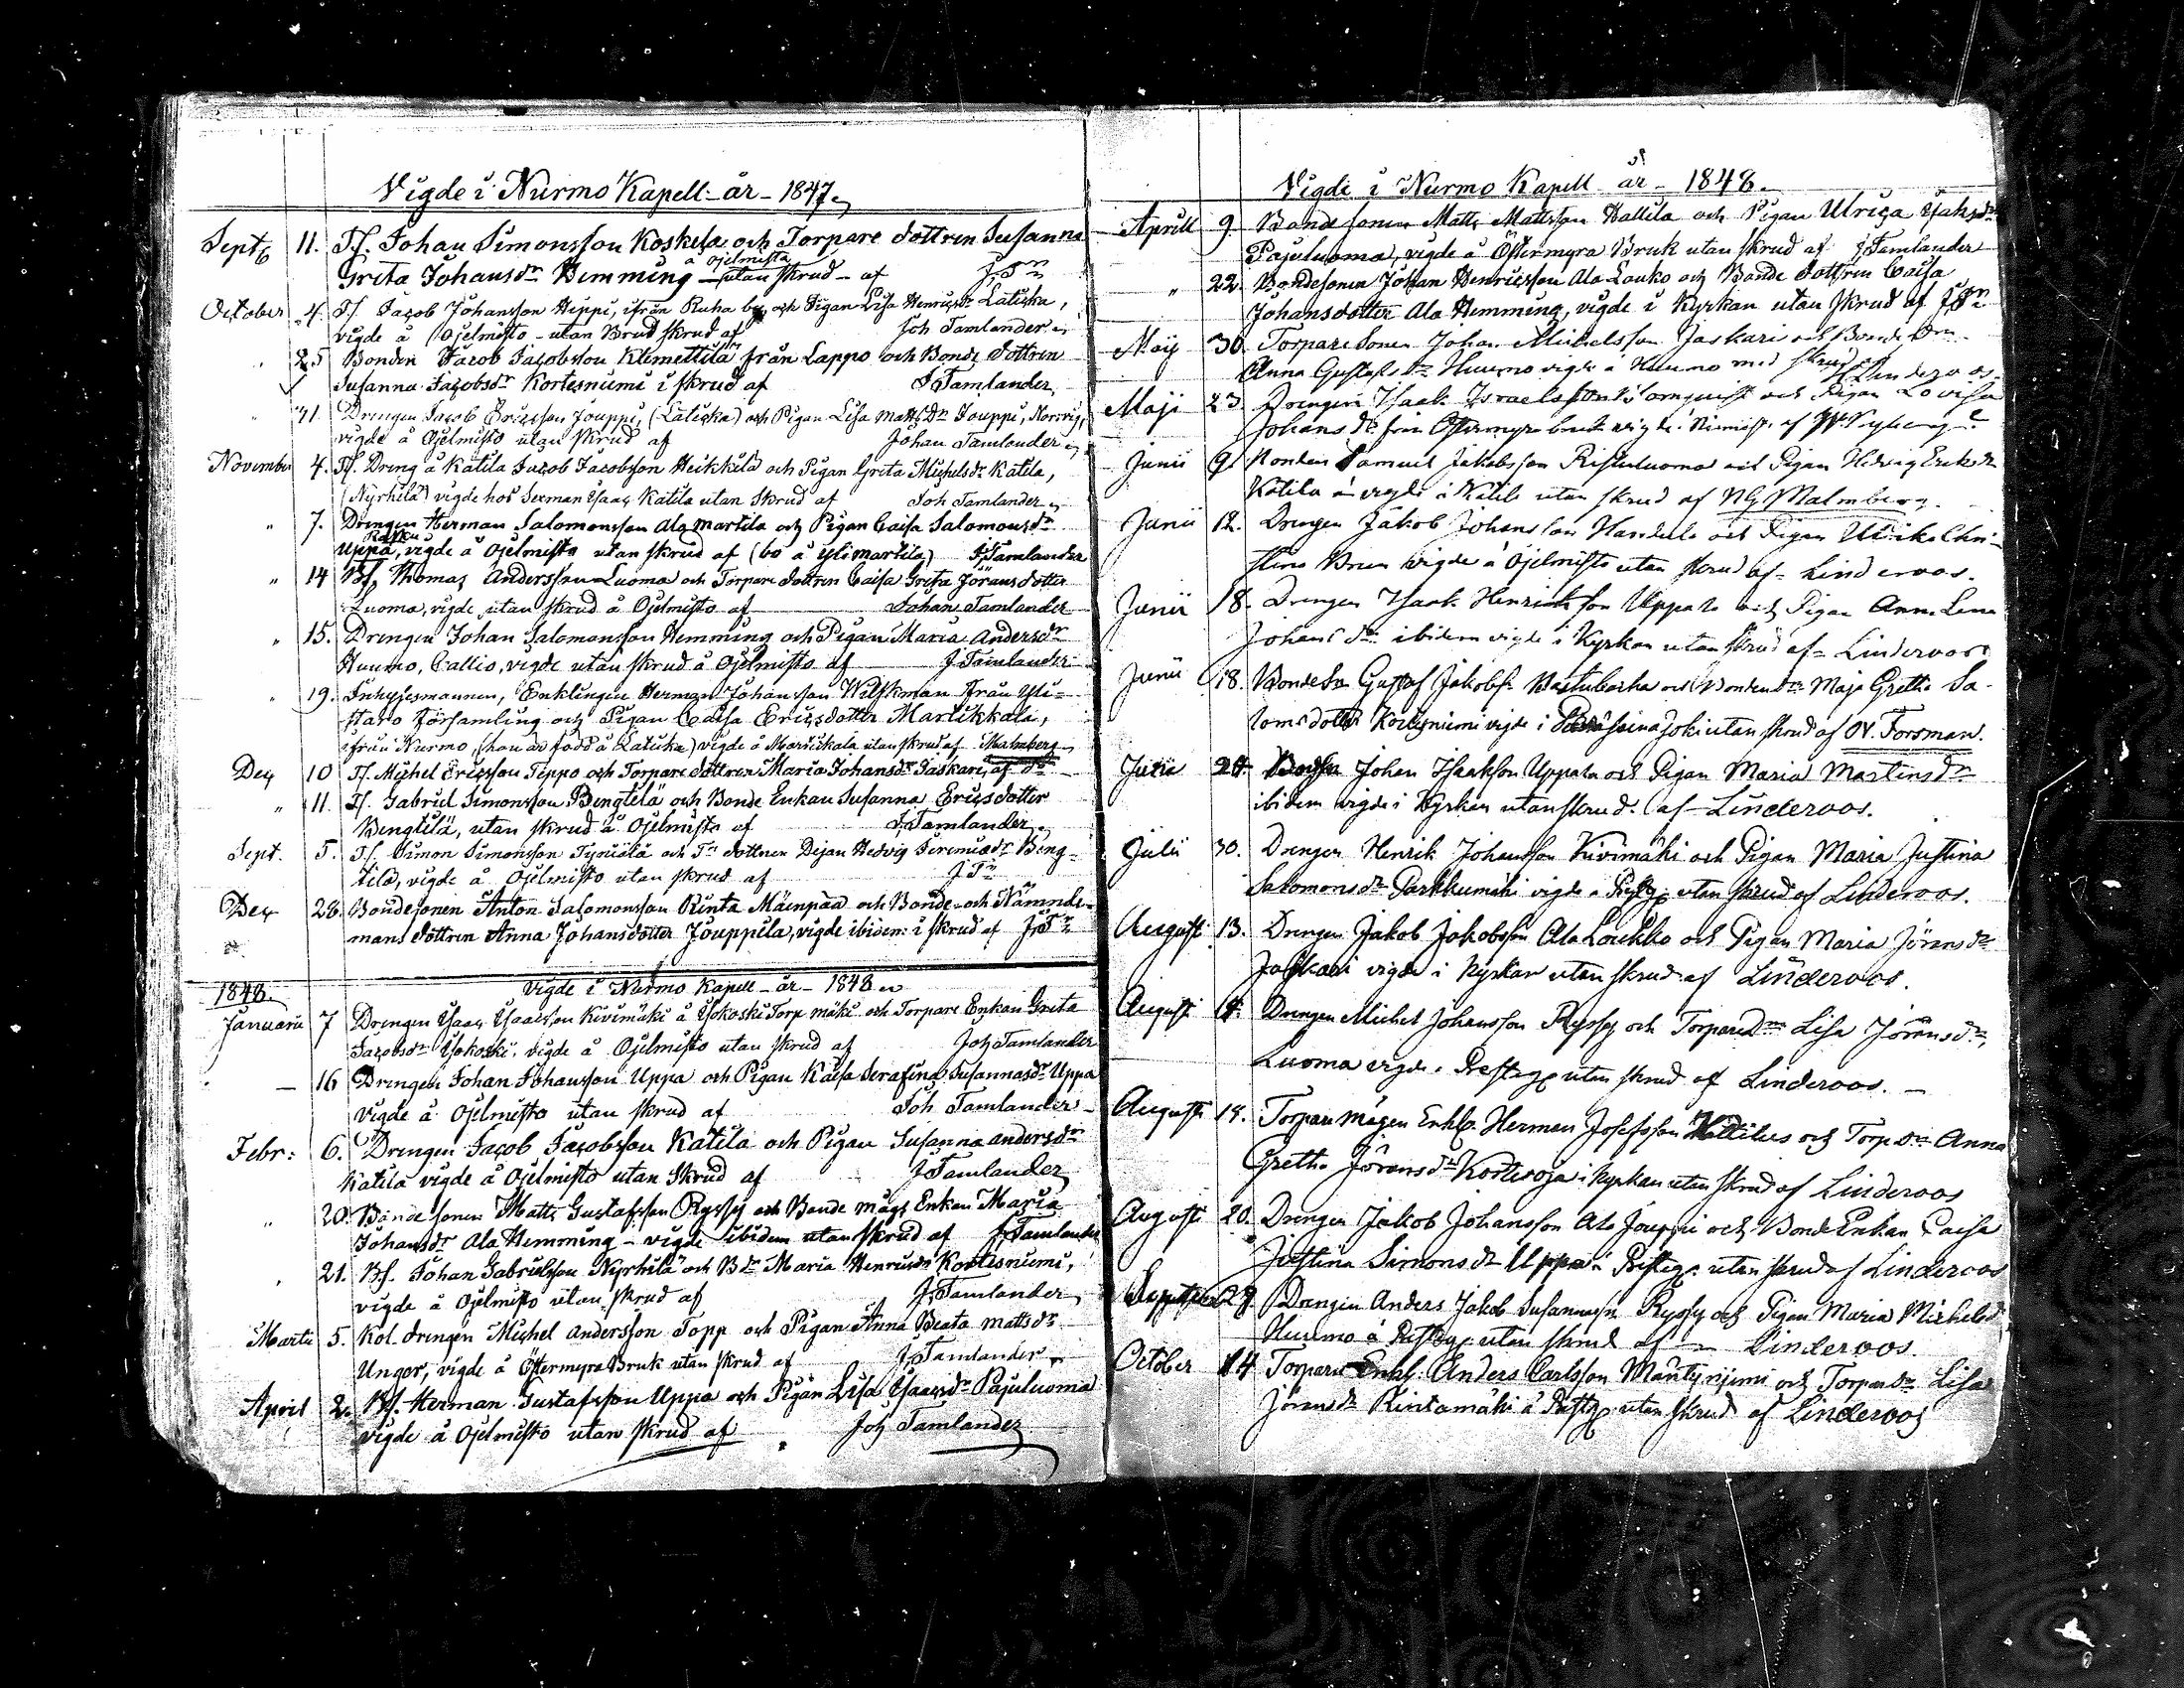 Vigde i Nurmo Kapell år 1847
Septb 11. Ts. Johan Simonsson Koskela och Torpare dottren Susanna
Greta Johansdr Hemming å Ojelmisto utan skrud af J. Tn
October 4. Ts. Jacob Johansson Hippi, ifrån Ruha by och Pigan Lisa Henricsdr Laticka,
vigde å Ojelmisto utan Brud skrud af Joh Tamlander
" 25 Bonden Jacob Jacobsson Klemettilä från Lappo och Bonde dottren
Susanna Jacobsdr Kortesniemi i skrud af J. Tamlander
" 31. Drengen Jacob Ericsson Jouppi, (Laticka) och Pigan Lisa Mattsdr Jouppi,
vigde å Ojelmisto utan skrud af Johan Tamlander
November 4. Ts. Dreng å Katila Jacob Jacobsson Heikkilä och Pigan Greta Michelsdr Katila,
(Nyrhilä) vigde hos Sexman Isaac Katila utan skrud af Joh Tamlander
" 7. Drengen Herman Salomonsson Ala Martila och Pigan Caisa Salomonsdr
Uppa, vigde å Ojelmisto utan skrud af (bo å Ylimartila) J. Tamlander
" 14 Bs. Thomas Andersson Luoma och Torpare dottren Caisa Greta Jöransdotter
Luoma, vigde utan skrud å Ojelmisto af Johan Tamlander
" 15. Drengen Johan Salomonsson Hemming och Pigan Maria Andersdr
Huumo, Callio, vigde utan skrud å Ojelmisto af J Tamlander
" 19. Inhysesmannen, Enklingen Herman Johansson Wilskman från Yli-
staro Församling och Pigan Caisa Ericsdotter Martikkala,
ifrån Nurmo, (hon är född å Laticka) vigde å Martikkala utan skrud af Malmberg
Dec 10 Ts. Michel Ericsson Teppo och Torpare dottren Maria Johansdr Jaskari, af do
" 11. Ts. Gabriel Simonsson Bengtelä och Bonde Enkan Susanna Ericsdotter
Bengtilä, utan skrud å Ojelmisto af J. Tamlander
Sept. 5. Ts. Simon Simonsson Tyriälä och Ts dottren Dejan Hedvig Jeremiædr Beng-
tilä, vigde å Ojelmisto utan skrud af J Tn
Dec 28. Bondesonen Anton Salomonsson Rinta Mäenpää och Bonde och Nämnde-
mans dottren Anna Johansdotter Jouppila, vigde ibidem i skrud af J. Tn
1848. Vigde i Nurmo Kapell år 1848
Januarii 7 Drengen Isaac Isaacsson Kivimäki å Ykoski Torp mäki och Torpare Enkan Greta
Jacobsdr Ykoski, vigde å Ojelmisto utan skrud af Joh Tamlander
— 16 Drengen Johan Johansson Uppa och Pigan Kaisa Serafina Susannasdr Uppa
vigde å Ojelmisto utan skrud af Joh Tamlander
Febr: 6. Drengen Jacob Jacobsson Katila och Pigan Susanna Andersdr
Katila vigde å Ojelmisto utan Skrud af J Tamlander
" 20. Bonde sonen Matts Gustafsson Ryssy och Bonde mågs Enkan Maria
Johansdr Ala Hemming – vigde ibidem utan skrud af J Tamlander
" 21. Bs. Johan Gabrielsson Nyrhilä och Bdr Maria Henricsdr Kortesniemi,
vigde å Ojelmisto utan skrud af J. Tamlander
Martii 5. Kol. drengen Michel Andersson Topp och Pigan Anna Beata Mattsdr
Unger, vigde å Östermyra Bruk utan skrud af J. Tamlander
April 2. Bs. Herman Gustafsson Uppa och Pigan Lisa Isaacsdr Pajuluoma
vigde å Ojelmisto utan skrud af Joh Tamlander
Vigde i Nurmo Kapell år 1848.
Aprill 9. Bonde sonen Matts Mattsson Hallila och Pigan Ulrica
Pajuluoma, vigde å Östermyra Bruk utan skrud af J Tamlander
" 22. Bondesonen Johan Henricsson Ala Louko och Bonde dottren Caisa
Johansdotter Ala Hemming, vigde i Kyrkan utan skrud af J Tn
Maij 30. Torparesonen Johan Michelsson Jaskari och Bonde Drn
Anna Gustafsdr Huumo vigde å Huumo med skrud af Linderoos.
Maji 23. Drengen Isaak Israelsson och Pigan Lovisa
Johansdr från Östermyra bruk vigde
Junii 9. Bonden Samuel Jakobsson Ristiluoma och Pigan Hedvig Eriksdr
Katila vigde i Katila utan skrud af NG Malmberg.
Junii 12. Drengen Jakob Johansson Handula och Pigan Ulrika Chri-
stina Brun vigde å Ojelmisto utan skrud af Linderoos.
Junii 18. Drengen Isaak Henriksson Uppala och Pigan Anna Lena
Johansdr ibidem vigde i Kyrkan utan skrud af Linderoos
Junii 18. BondeSn Gustaf Jakobss och Bondedr Maja Greta Sa-
lomsdotter Kortesniemi vigde i Seinäjoki utan skrud af OV. Forsman.
Junii 24. Johan Isaksson Uppala och Pigan Maria Martinsdr
ibidem vigde i Kyrkan utan skrud. af Linderoos.
Julii 30. Drengen Henrik Johansson Kivimäki och Pigan Maria Justina
Salomonsdr Parkkumäki vigde å Prstg. utan skrud af Linderoos.
Augusti 13. Drengen Jakob Jakobsson Ala Loukko och Pigan Maria Jöransdr
Jaskari vigde i Kyrkan utan skrud af Linderoos.
Augusti Drengen Michel Johansson Ryssy och Torparedn Lisa Jöransdr,
Luoma vigde å Prestg. utan skrud af Linderoos. –
Augusti 18. Torparemågen Enkl. Herman Josefsson och Torp.dr Anna
Greta Jöransdr Kortesoja i Kyrkan utan skrud af Linderoos
Augusti 20. Drengen Jakob Johansson Ala Jouppi och Bonde Enkan Caisa
Justina Simonsdr Uppa å Prestg. utan skrud af Linderoos
Drengen Anders Jakob Susannasn Ryssy och Pigan Maria Michelsd
Huumo å Prstg. utan skrud af Linderoos.
October 14 Torpare Enkl. Anders Carlsson Mäntyniemi och Torparedr Lisa
Jöransdr Rintamäki å Prstg. utan skrud af Linderoos